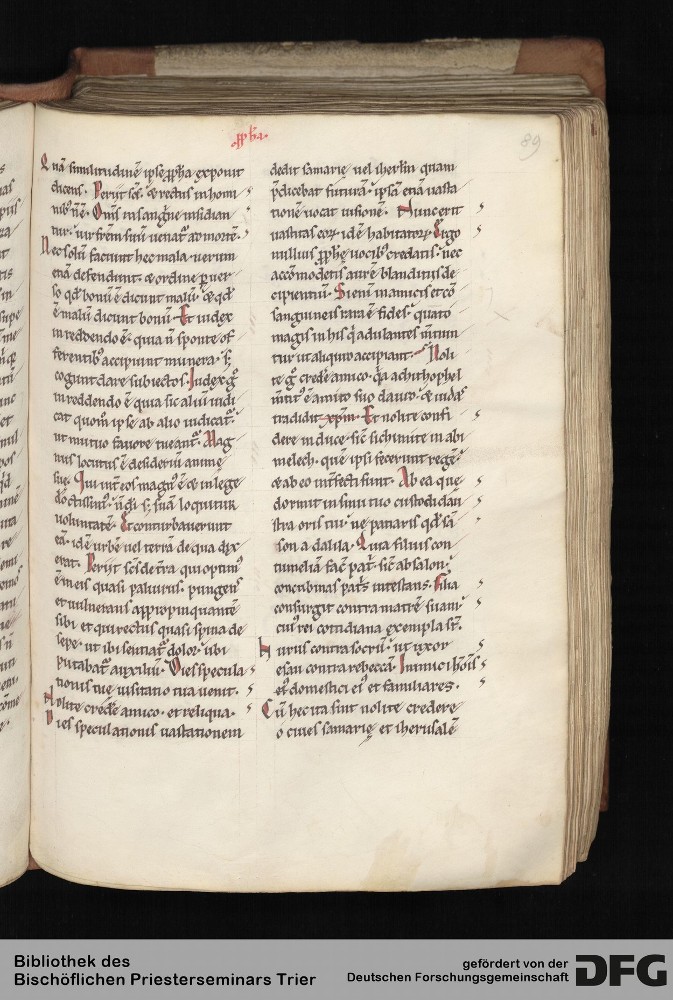 89
Quā similitudinē ipse ꝓpha exponit
dicens. Periit sc̄s. & rectus in homi
nibꝰ nō ē. Om̄s in sanguine insidian
tur. uir frēm suū uenat᷑ ad mortē.
Nec solū faciunt hec mala. uerum
etiā defendunt. & ordine ꝑuer
so qd̄ bonū ē dicunt malū. & qd̄
ē malū dicunt bonū. Et iudex
in reddendo ē. quia n̄ sponte of
ferentibꝰ accipiunt munera. s;
cogunt dare subiectos. Iudex g̊
in reddendo ē quia sic aliū iudi
cat quom̊ ipse ab alio iudicat᷑.
ut mutuo fauore tueant᷑. Mag
nus locutus ē desideriū anime
sue. Qui int̄ eos magnꝰ ē & in lege
doctissimꝰ. n̄ d̄i s; suā loquitur
uoluntatē. Et conturbauerunt
eā. idē urbē uel terrā de qua dix
erat. Periit sc̄s de t̄ra qui optimꝰ
ē in eis quasi paliurus. pungens
et uulnerans appropinquantē
sibi. et qui rectus quasi spina de
sepe. ut ibi sentiat᷑ dolor. ubi
putabat᷑ auxiliū. Dies specula
tionis tue uisitatio tua uenit.
Nolite credere amico. et reliqua.
Dies speculationis uastationem
dedit samarię uel iherl̄m quam
p̄dicebat futurā. ipsā etiā uasta
tionē uocat uisionē. Nunc erit
uastitas eoꝝ. idē habitatoꝝ. Ergo
nullius ꝓphę uocibꝰ credatis. nec
accōmodetis aurē blanditiis de
cipientiū. Si enī in amicis et cō
sanguineis rara ē fides. quāto
magis in his q̄ adulantes
tur ut aliquid accipiant. Noli
te g̊ credere amico. q̄a achithophel
ē amico suo dauid. & iudas
tradidit xp̄m. Et nolite confi
dere in duce. sic̄ sichimite in abi
melech. quē ipsi fecerunt regē.
& ab eo int̄fecti sunt. Ab ea que
dormit in sinu tuo custodi clau
stra oris tui. ne patiaris qd̄ sā
son a dalila. Quia filius con
tumeliā fac̄ pat̄. sic̄ absalon
concubinas pat̄s incestans. Filia
consurgit contra matrē suam.
cuiꝰ rei cottidiana exempla st̄.
Nurus contra socrū. ut uxor
esau contra rebeccā. Inimici hōis
eiꝰ domestici eiꝰ et familiares.
Cū hec ita sint nolite credere
o ciues samarię et iherusalē
Bibliothek des
Bischöflichen Priesterseminars Trier
gefördert von der
Deutschen Forschungsgemeinschaft
DFG